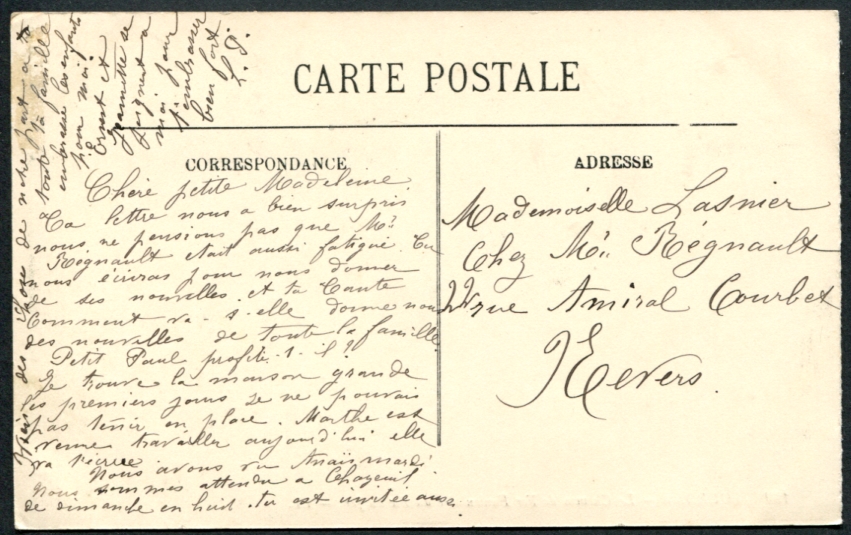 CARTE POSTALE
CORRESPONDANCE
Chère petite Madeleine
Ta lettre nous a bien surpris
nous ne pensions pas que Mr
Régnault était aussi fatigué. Tu
nous écriras pour nous donner
de ses nouvelles et ta Tante
Comment va-t-elle donne nous
des nouvelles de toute la famille
Petit Paul profite-t-il?
Je trouve la maison grande
les premiers jours je ne pouvais
pas tenir en place. Marthe est
venue travailler aujourd'hui elle
va
Nous avons vu Anaïs mardi
nous sommes attendu a
de dimanche en huit. tu est invitée aussi
de notre part a ta
toute ta famille
embrasse les enfants
pour moi.
Ernest et
Jeannette se
joignent a
moi pour
t'embrasser
bien fort
L. D.
ADRESSE
Mademoiselle Lasnier
Chez Mr. Régnault
22 rue Amiral Courbet
Nevers.